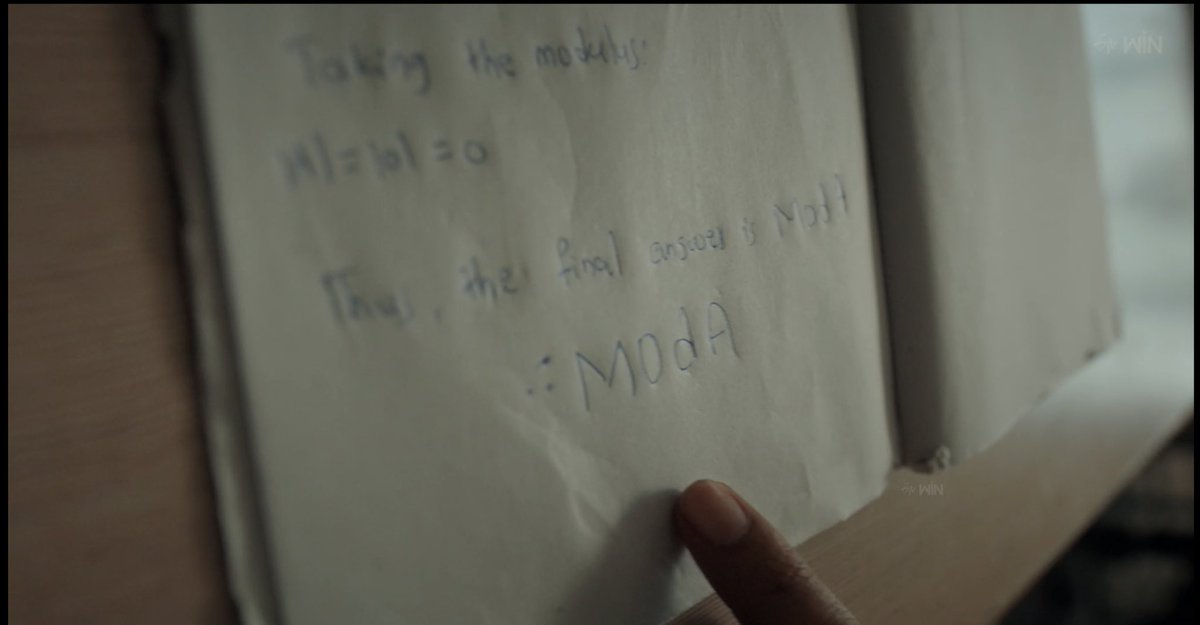 Taking the modulus:
|A| = |0| = 0
Thus, the final answer is Mod A
∴ MOdA
WIN
WIN